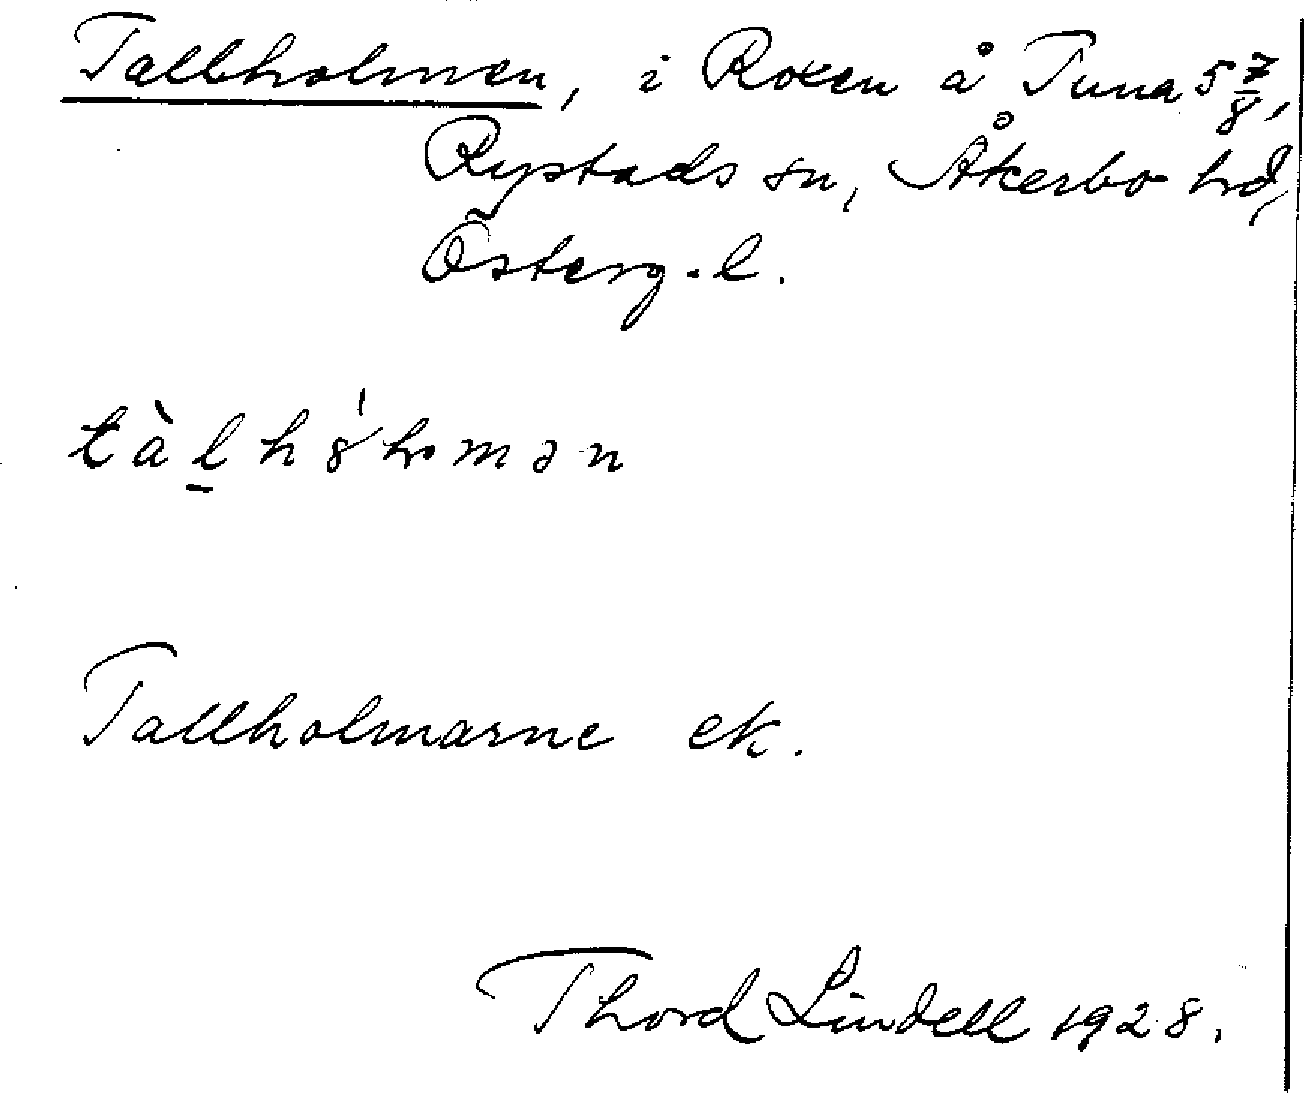 Tallholmen, i Roxen å Tuna 5 7/8,
Rystads sn, Åkerbo hd,
Österg.l.
Tallholmarne ek.
Thord Lindell 1928.